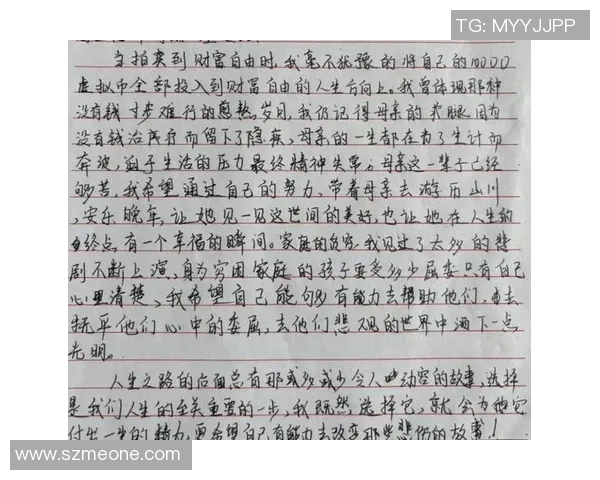 TG: MYYJJPP
当拍卖到财富自由时,我毫不犹豫的将自己的10000
虚拟币全部投入到财富自由的人生方向上。我曾体现那种
没有钱寸步难行的 岁月,我仍记得母亲的 腿因为
没有钱治疗而留下了隐疾、母亲的一生都在为了生计而
奔波,迫于生活的压力最终精神失常。母亲这一辈子已经
够苦,我希望通过自己的努力,带着母亲去游历山川
,安乐晚年,让她见一见这世间的美好,也让她在人生的
终点有一个幸福的瞬间。家庭的贫穷,我见过了太多的悲
剧不断上演,身为穷困家庭的孩子要受多少屈委只有自己
心里清楚、我希望自己能够有能力去帮助他们,去
抚平他们心中的委屈,去他们悲观的世界中洒下一点
光明。
人生之路的后面总有那或多或少令人动容的故事,选择
是我们人生的至关重要的一步,我既然选择它,就会为他它
付出一生的精力,更希望自己有能力去改变那些悲伤的故事!
www.szmeone.com